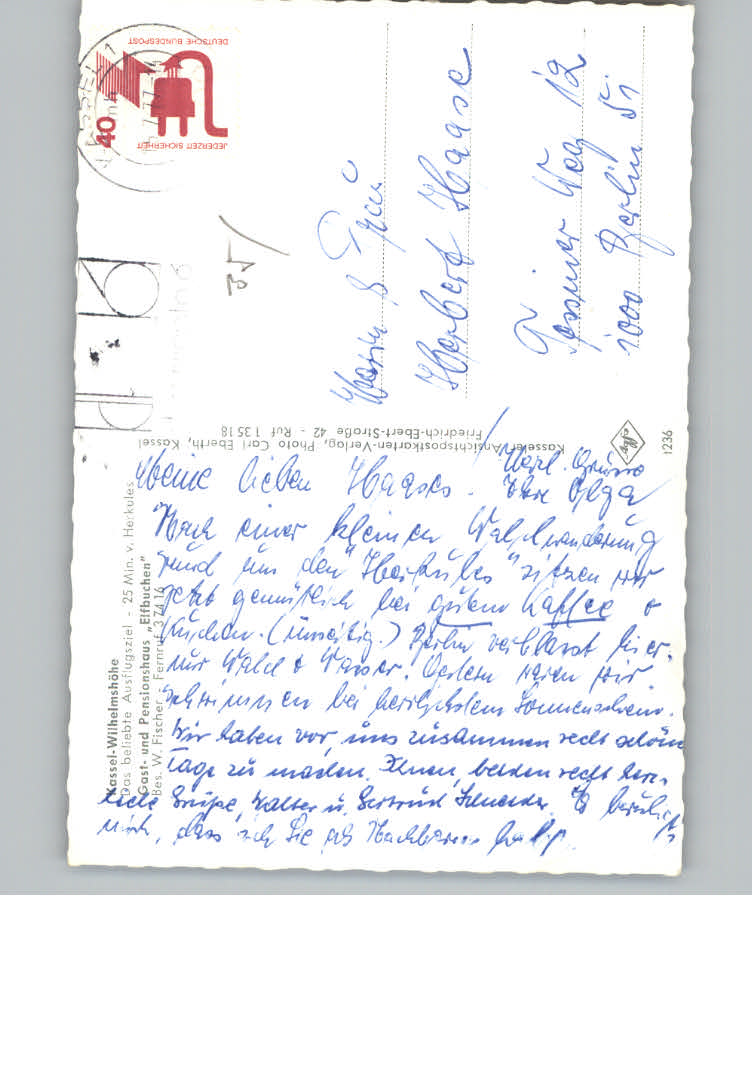 Kassel-Wilhelmshöhe
Das beliebte Ausflugsziel - 25 Min. v. Herkules
Gast- und Pensionshaus „Elfbuchen"
Bes. W. Fischer, Fernruf 3 74 16
Meine lieben Haases.
Nach einer kleinen Waldwanderung
rund um den "Herkules" sitzen wir
jetzt gemütlich bei gutem Kaffee +
Kuchen. (umseitig.) Berlin verblasst hier.
nur Wald + Wasser. Gestern waren wir
Schwimmen bei herrlichstem Sonnenschein.
Wir haben vor, uns zusammen recht schöne
Tage zu machen. Ihnen beiden recht herz-
liche Grüße, Walter u. Gertrud Schneider. Es beruhigt
mich, dass ich Sie als Nachbarn habe.
Herzl. Grüsse
Ihre Olga
Kasseler Ansichtspostkarten-Verlag, Photo Carl Eberth, Kassel
Friedrich-Ebert-Straße 42 - Ruf 1 35 18
Agfa
1236
DEUTSCHE BUNDESPOST
40
JEDERZEIT SICHERHEIT
KASSEL 1
35/
Herrn & Frau
Herbert Haase
Tessiner Weg 12
1000 Berlin 51